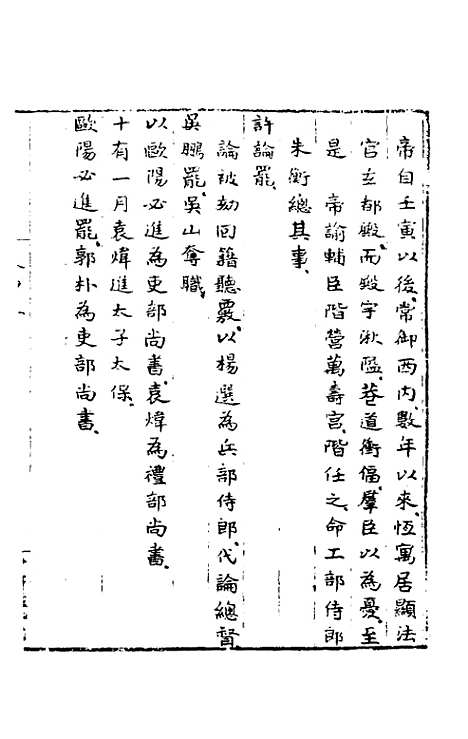 帝自壬寅以後、常御西内、數年以來、恆寓居顯法
宫玄都殿、而殿宇湫隘、巷道衝偪、羣臣以為憂、至
是　帝諭輔臣階營萬壽宫、階任之、命工部侍郎
朱衡總其事、
許論罷、
論被劾回籍聽覈、以楊選為兵部侍郎、代論總督、
吳鵬罷、吳山奪職、
以歐陽必進為吏部尚書、袁煒為禮部尚書、
十有一月袁煒進太子太保、
歐陽必進罷、郭朴為吏部尚書、